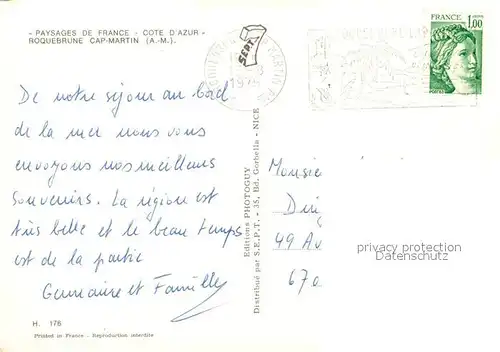 « PAYSAGES DE FRANCE - COTE D'AZUR »
ROQUEBRUNE CAP-MARTIN (A.-M.).
SEPT
FRANCE 1,00
De notre séjour au bord
de la mer nous vous
envoyons nos meilleurs
souvenirs. La région est
très belle et le beau temps
est de la partie
et Famille
Editions PHOTOGUY
Distribué par S.E.P.T. - 35, Bd. Gorbella - NICE
Monsie
Diri
49 Av
670
privacy protection
Datenschutz
H. 176
Printed in France - Reproduction interdite